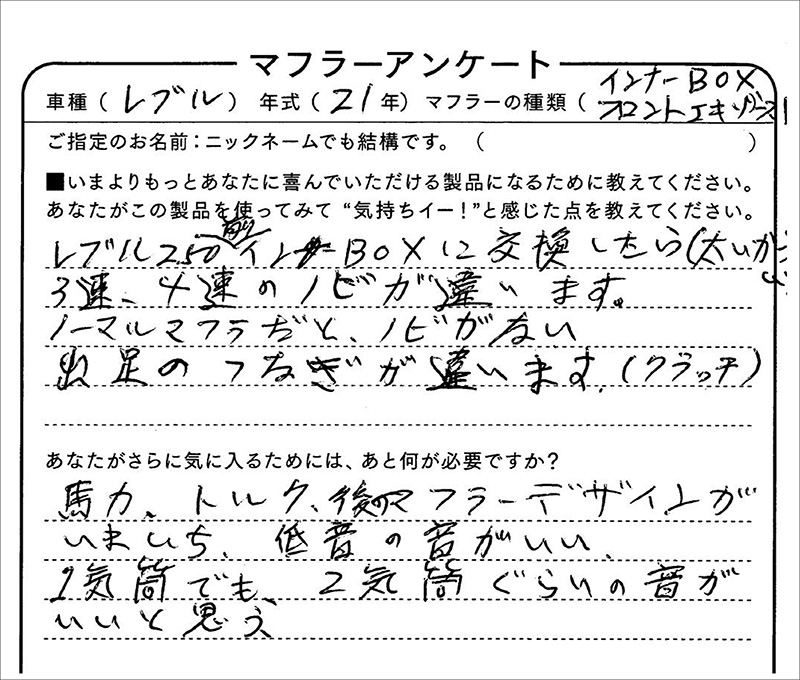 マフラーアンケート
車種（レブル）　年式（21年）マフラーの種類（インナーBOX
フロントエキゾースト
ご指定のお名前：ニックネームでも結構です。（　　　）
■いまよりもっとあなたに喜んでいただける製品になるために教えてください。
あなたがこの製品を使ってみて“気持ちイー！”と感じた点を教えてください。
レブル250インナーBOXに交換したら(太いが
3速、4速のノビが違います。
ノーマルマフラだと、ノビがない
出足のつなぎが違います.(クラッチ)
あなたがさらに気に入るためには、あと何が必要ですか？
馬力、トルク、後のマフラーデザインが
いまいち、低音の音がいい、
1気筒でも、2気筒ぐらいの音が
いいと思う、